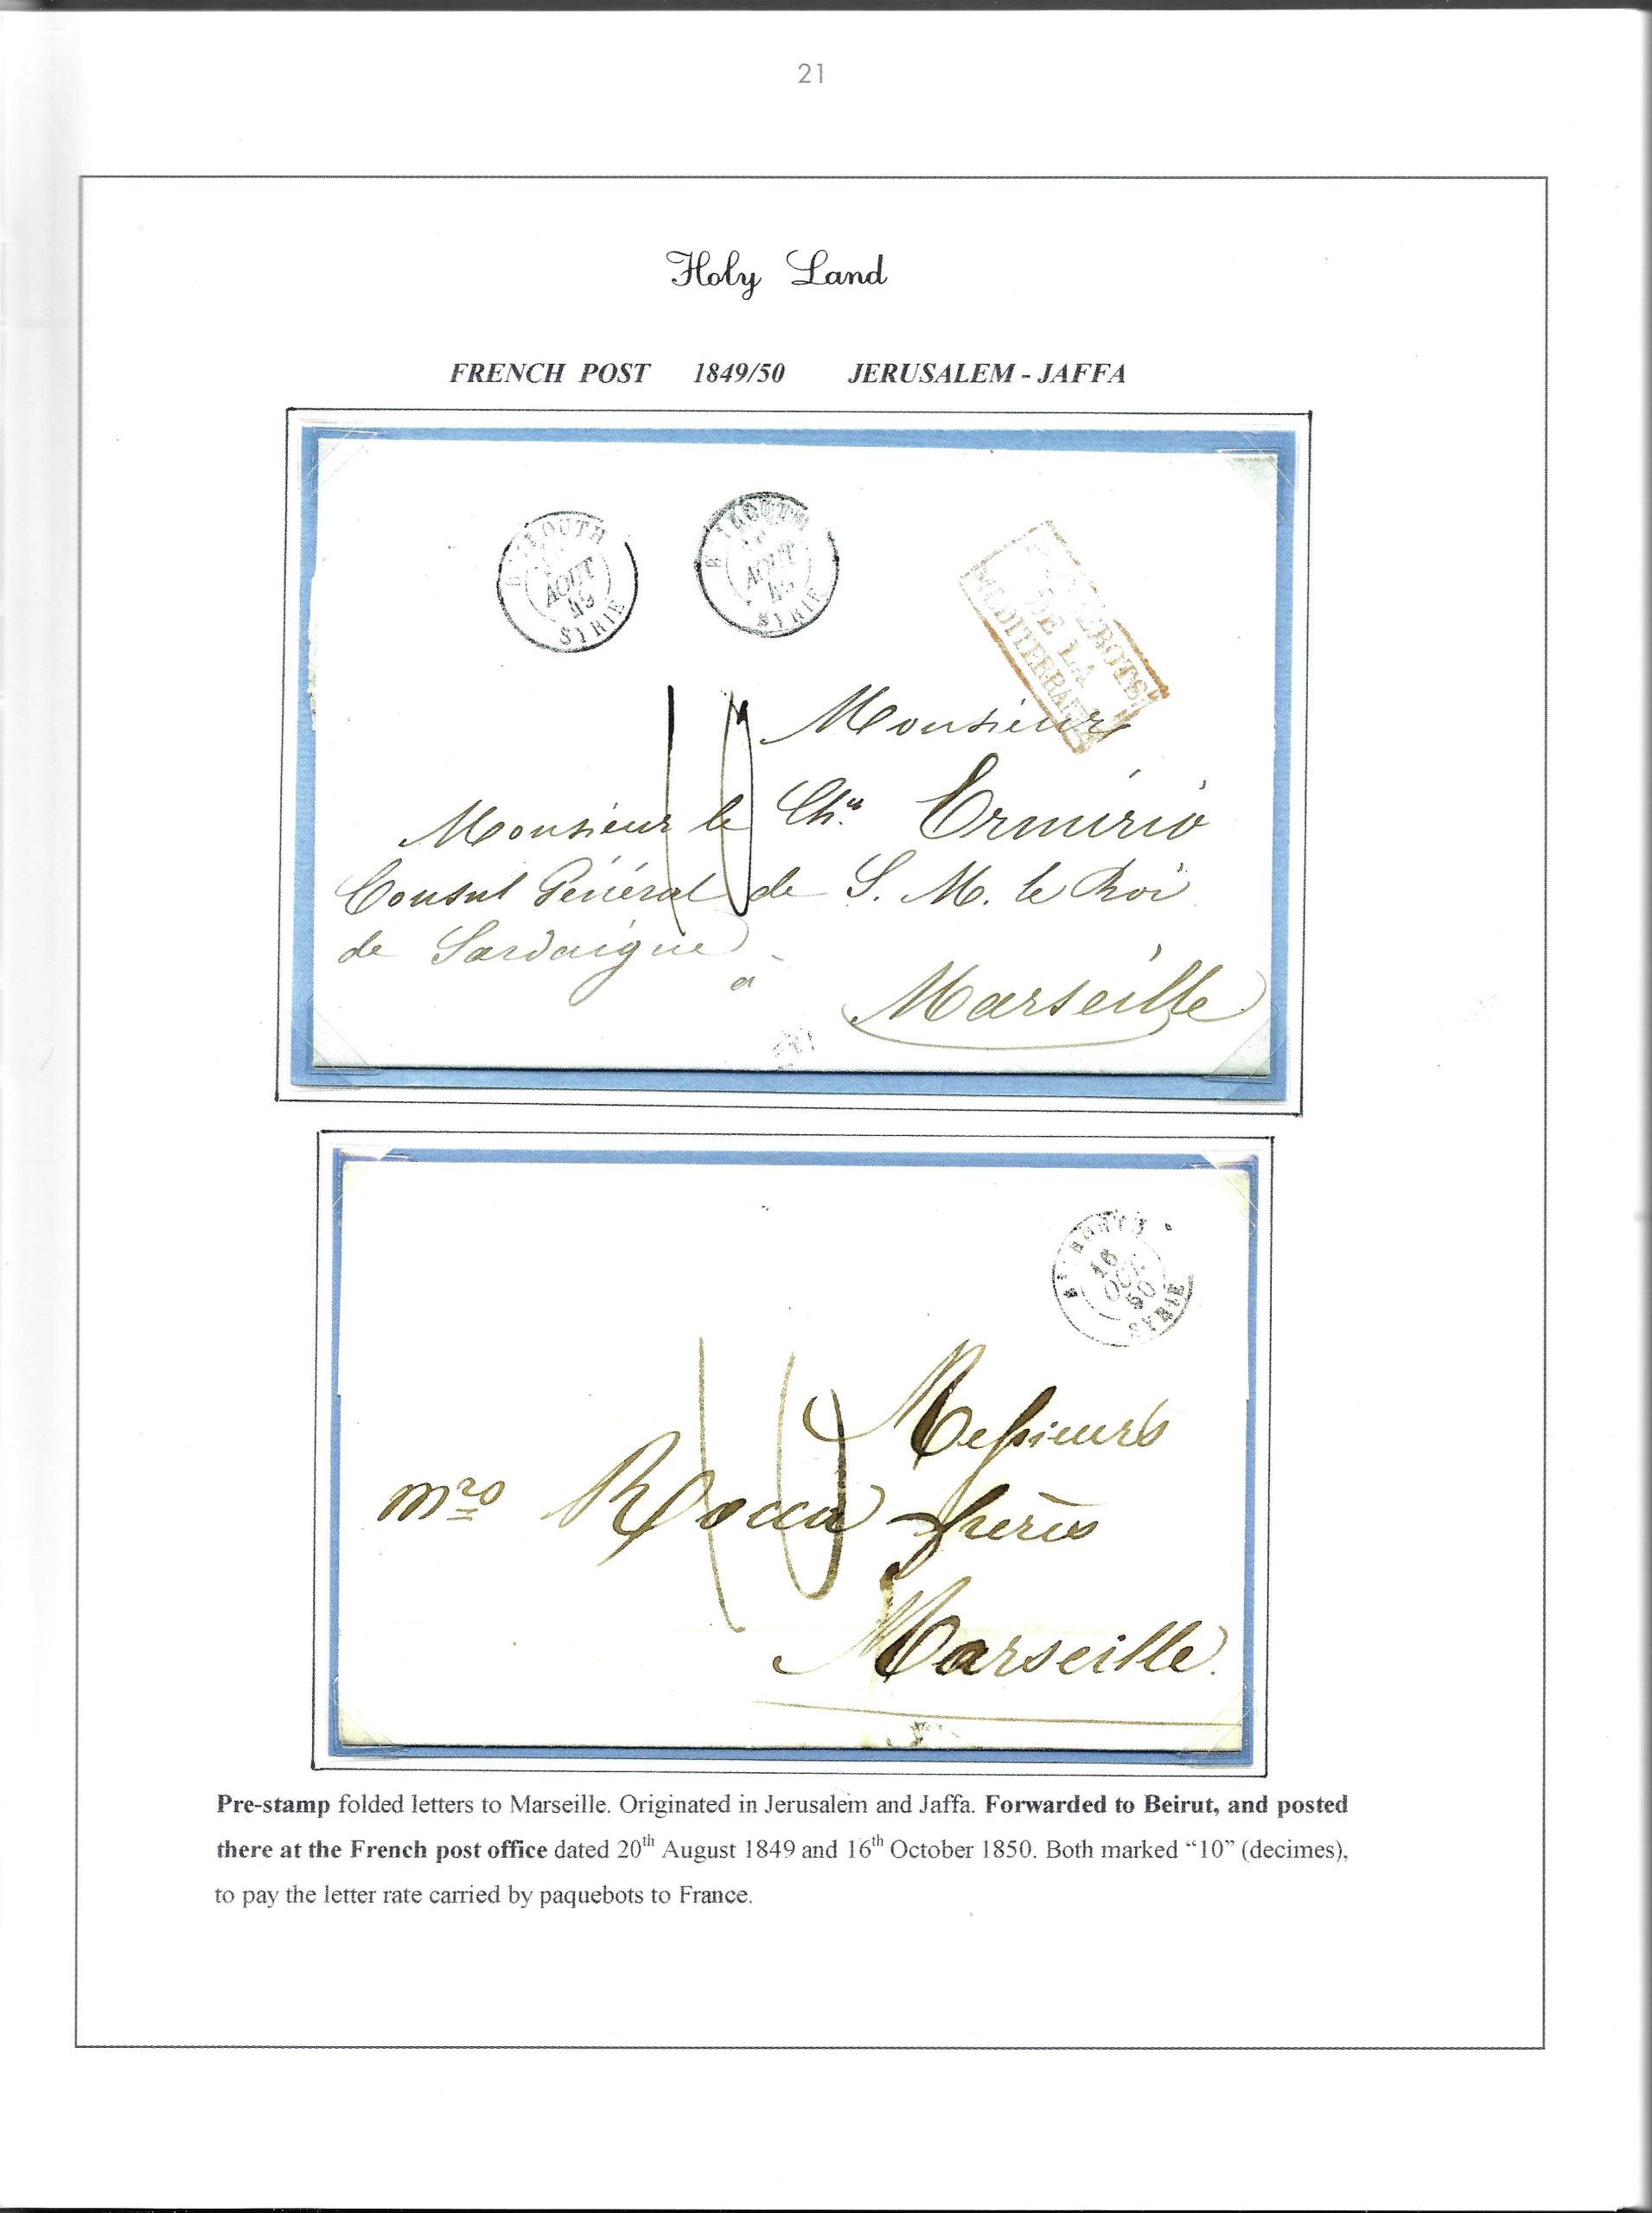 21
Holy Land
FRENCH POST 1849/50 JERUSALEM - JAFFA
AOUT
49
SYRIE
AOUT
SYRIE
DE LA
Monsieur
Monsieur le Ch.er Ermirio
Consul Général de S. M. le Roi
de Sardaigne
à
Marseille
10
16
OCT.
50
SYRIE
Messieurs
Rocca frères
Marseille
10
Pre-stamp folded letters to Marseille. Originated in Jerusalem and Jaffa. Forwarded to Beirut, and posted
there at the French post office dated 20th August 1849 and 16th October 1850. Both marked “10” (decimes),
to pay the letter rate carried by paquebots to France.